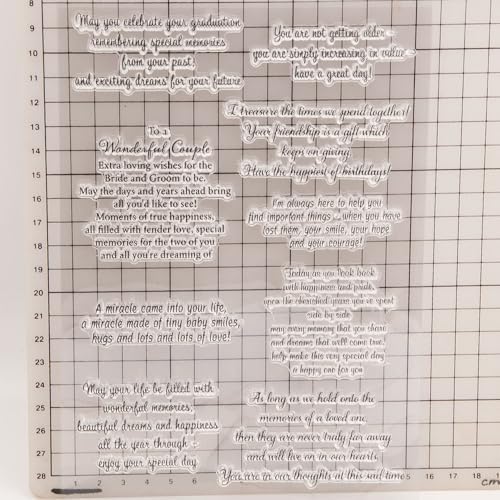 May you celebrate your graduation
remembering special memories
from your past,
and exciting dreams for your future
You are not getting older
you are simply increasing in value
have a great day!
I treasure the times we spend together!
Your friendship is a gift which
keeps on giving.
Have the happiest of birthdays!
To a
Wonderful Couple
Extra loving wishes for the
Bride and Groom to be.
May the days and years ahead bring
all you'd like to see!
Moments of true happiness,
all filled with tender love, special
memories for the two of you
and all you're dreaming of
I'm always here to help you
find important things when you have
lost them, your smile, your hope
and your courage!
Today as you look back
with happiness and pride,
upon the cherished years you've spent
side by side
may every memory that you share
and dreams that will come true,
help make this very special day
a happy one for you
A miracle came into your life,
a miracle made of tiny baby smiles,
hugs and lots and lots of love!
May your life be filled with
wonderful memories,
beautiful dreams and happiness
all the year through
enjoy your special day
As long as we hold onto the
memories of a loved one,
then they are never truly far away
and will live on in our hearts
You are in our thoughts at this sad time
9
10
11
12
13
14
15
16
17
18
19
20
21
22
23
24
25
26
27
28
1 2 3 4 5 6 15 16 17 18 cm